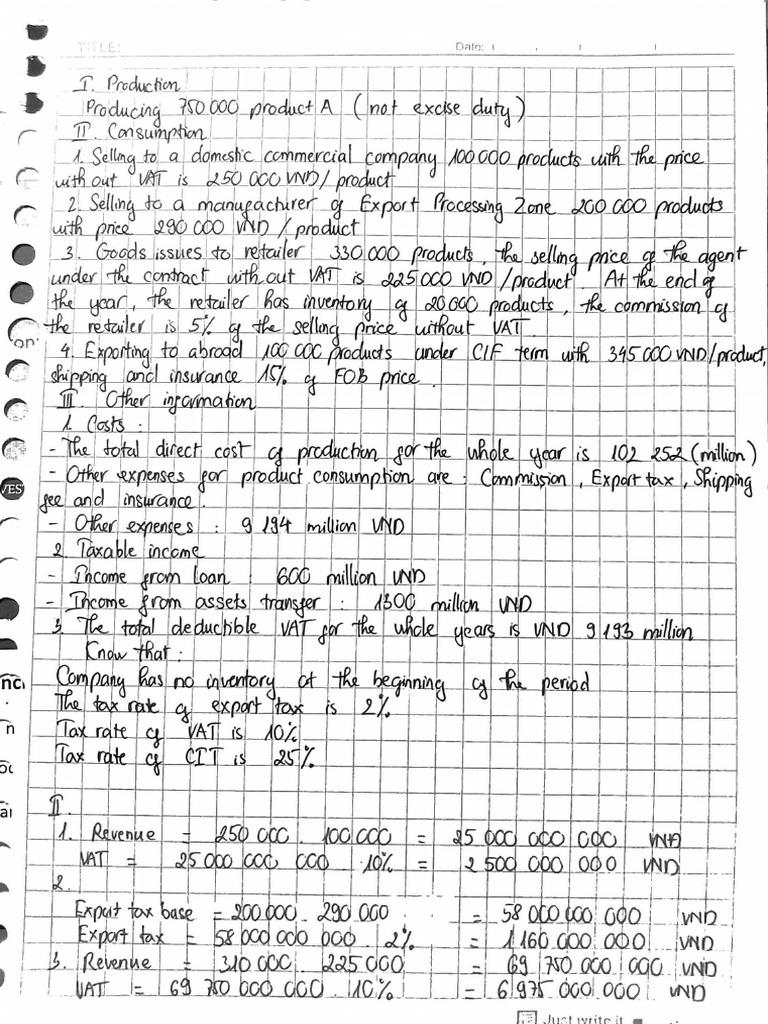 TITLE: Date:
I. Production
Producing 750 000 product A (not excise duty)
II. Consumption
1. Selling to a domestic commercial company 100 000 products with the price
with out VAT is 250 000 VND/ product
2. Selling to a manufacturer of Export Processing Zone 200 000 products
with price 290 000 VND / product
3. Goods issues to retailer 330 000 products, the selling price of the agent
under the contract without VAT is 225 000 VND /product. At the end of
the year, the retailer has inventory of 20 000 products, the commission of
the retailer is 5% of the selling price without VAT
4. Exporting to abroad 100 000 products under CIF term with 345 000 VND/product,
shipping and insurance 15% of FOB price.
III. Other information
1. Costs :
- The total direct cost of production for the whole year is 102 252 (million)
- Other expenses for product consumption are : Commission, Export tax, Shipping
fee and insurance.
- Other expenses : 9 194 million VND
2. Taxable income
- Income from loan : 600 million VND
- Income from assets transfer : 1300 million VND
3. The total deductible VAT for the whole years is VND 9 193 million
Know that :
Company has no inventory at the beginning of the period
The tax rate of export tax is 2%
Tax rate of VAT is 10%
Tax rate of CIT is 25%
II.
1. Revenue = 250 000 . 100 000 = 25 000 000 000 VND
VAT = 25 000 000 000 . 10% = 2 500 000 000 VND
2.
Export tax base = 200 000 . 290 000 = 58 000 000 000 VND
Export tax = 58 000 000 000 . 2% = 1 160 000 000 VND
3. Revenue = 310 000 . 225 000 = 69 750 000 000 VND
VAT = 69 750 000 000 . 10% = 6 975 000 000 VND
Just write it